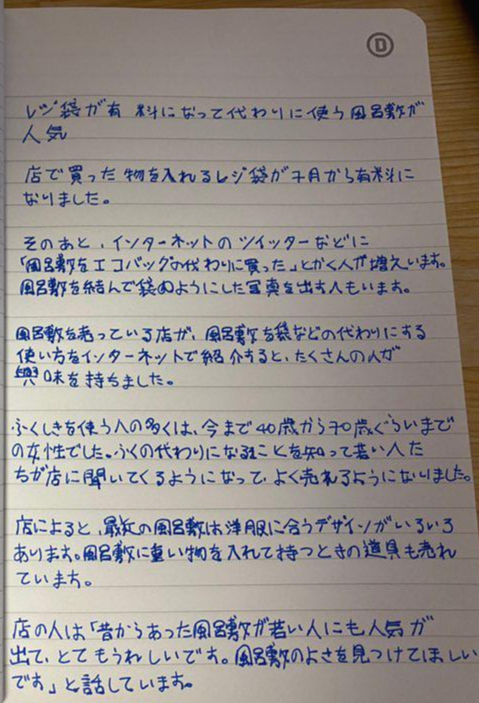 D
レジ袋が有料になって代わりに使う風呂敷が
人気
店で買った物を入れるレジ袋が7月から有料に
なりました。
そのあと、インターネットのツイッターなどに
「風呂敷をエコバッグの代わりに買った」とかく人が増えいます。
風呂敷を結んで袋のようにした写真を出す人もいます。
風呂敷を売っている店が、風呂敷を袋などの代わりにする
使い方をインターネットで紹介すると、たくさんの人が
興味を持ちました。
ふくしきを使う人の多くは、今まで40歳から70歳ぐらいまで
の女性でした。ふくの代わりになることを知って若い人た
ちが店に聞いてくるようになって、よく売れるようになりました。
店によると、最近の風呂敷は洋服に合うデザインがいろいろ
あります。風呂敷に重い物を入れて持つときの道具も売れ
ています。
店の人は「昔からあった風呂敷が若い人にも人気が
出て、とてもうれしいです。風呂敷のよさを見つけてほしい
です」と話しています。